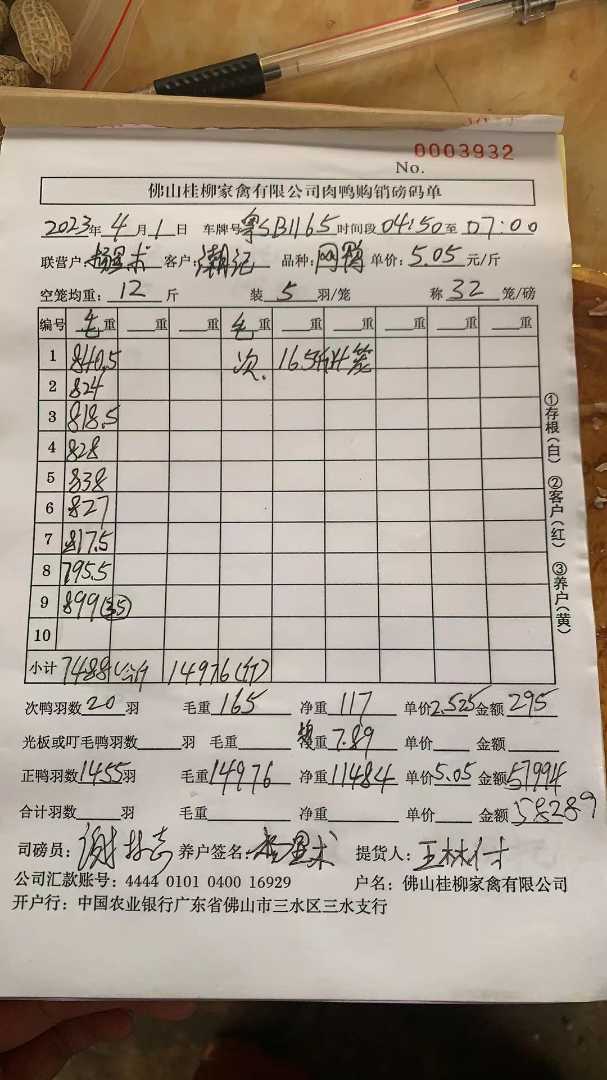 No. 0003932
佛山桂柳家禽有限公司肉鸭购销磅码单
2023年 4 月 1 日 车牌号 粤SB1165 时间段 04:50 至 07:00
联营户: 术 客户: 潮记 品种: 网鸭 单价: 5.05 元/斤
空笼均重: 12 斤 装 5 羽/笼 称 32 笼/磅
编号 毛重 重 重 毛重 重 重 重 重 重
1 840.5 次. 165斤 4笼
2 824
3 818.5
4 828
5 838
6 827
7 817.5
8 795.5
9 899 (35)
10
小计 7488公斤 14976(斤)
次鸭羽数 20 羽 毛重 165 净重 117 单价 2.525 金额 295
光板或叮毛鸭羽数 羽 毛重 均重 7.89 单价 金额
正鸭羽数 1455 羽 毛重 14976 净重 11484 单价 5.05 金额 57994
合计羽数 羽 毛重 净重 单价 金额 58289
司磅员: 谢 养户签名: 术 提货人: 王林付
公司汇款账号: 4444 0101 0400 16929 户名: 佛山桂柳家禽有限公司
开户行: 中国农业银行广东省佛山市三水区三水支行
①存根(白) ②客户(红) ③养户(黄)